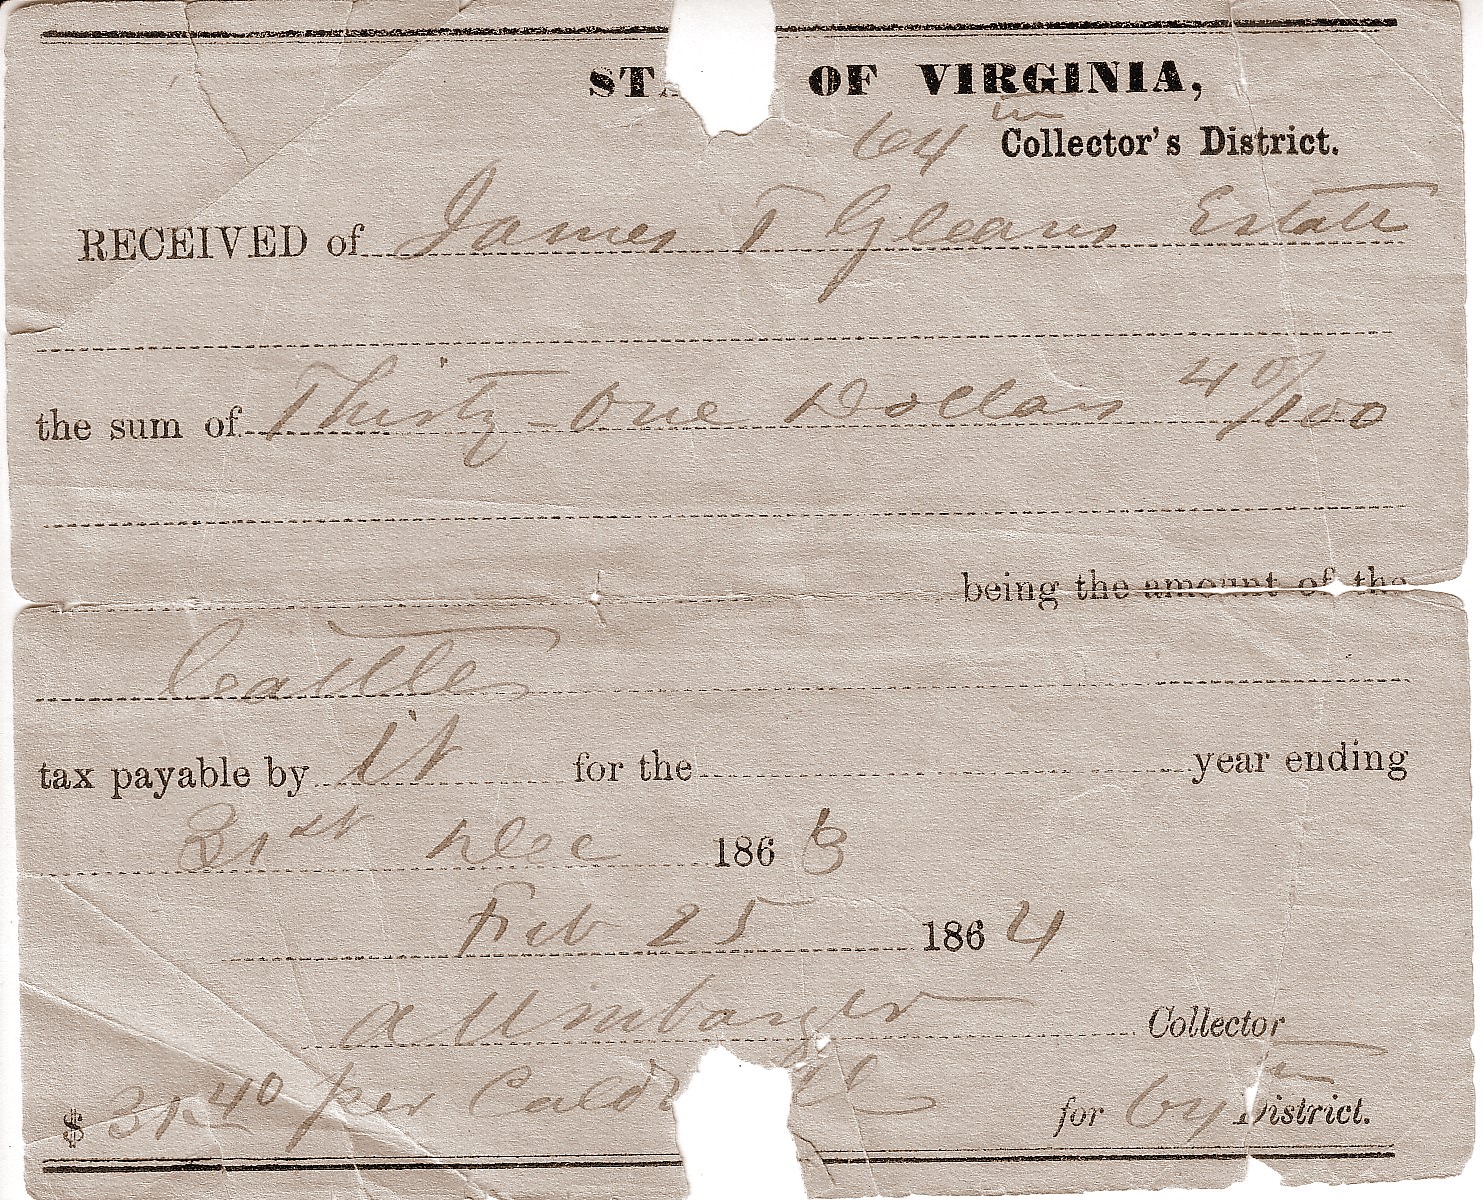 STA OF VIRGINIA,
64th Collector's District.
RECEIVED of James T Gleaves Estate
the sum of Thirty-One Dollars 40/100
being the amount of the
Cattle
tax payable by it for the year ending
31st Dec 1863
Feb 25 1864
A Umbarger Collector
$ 31.40 per Caldwell for 64th District.